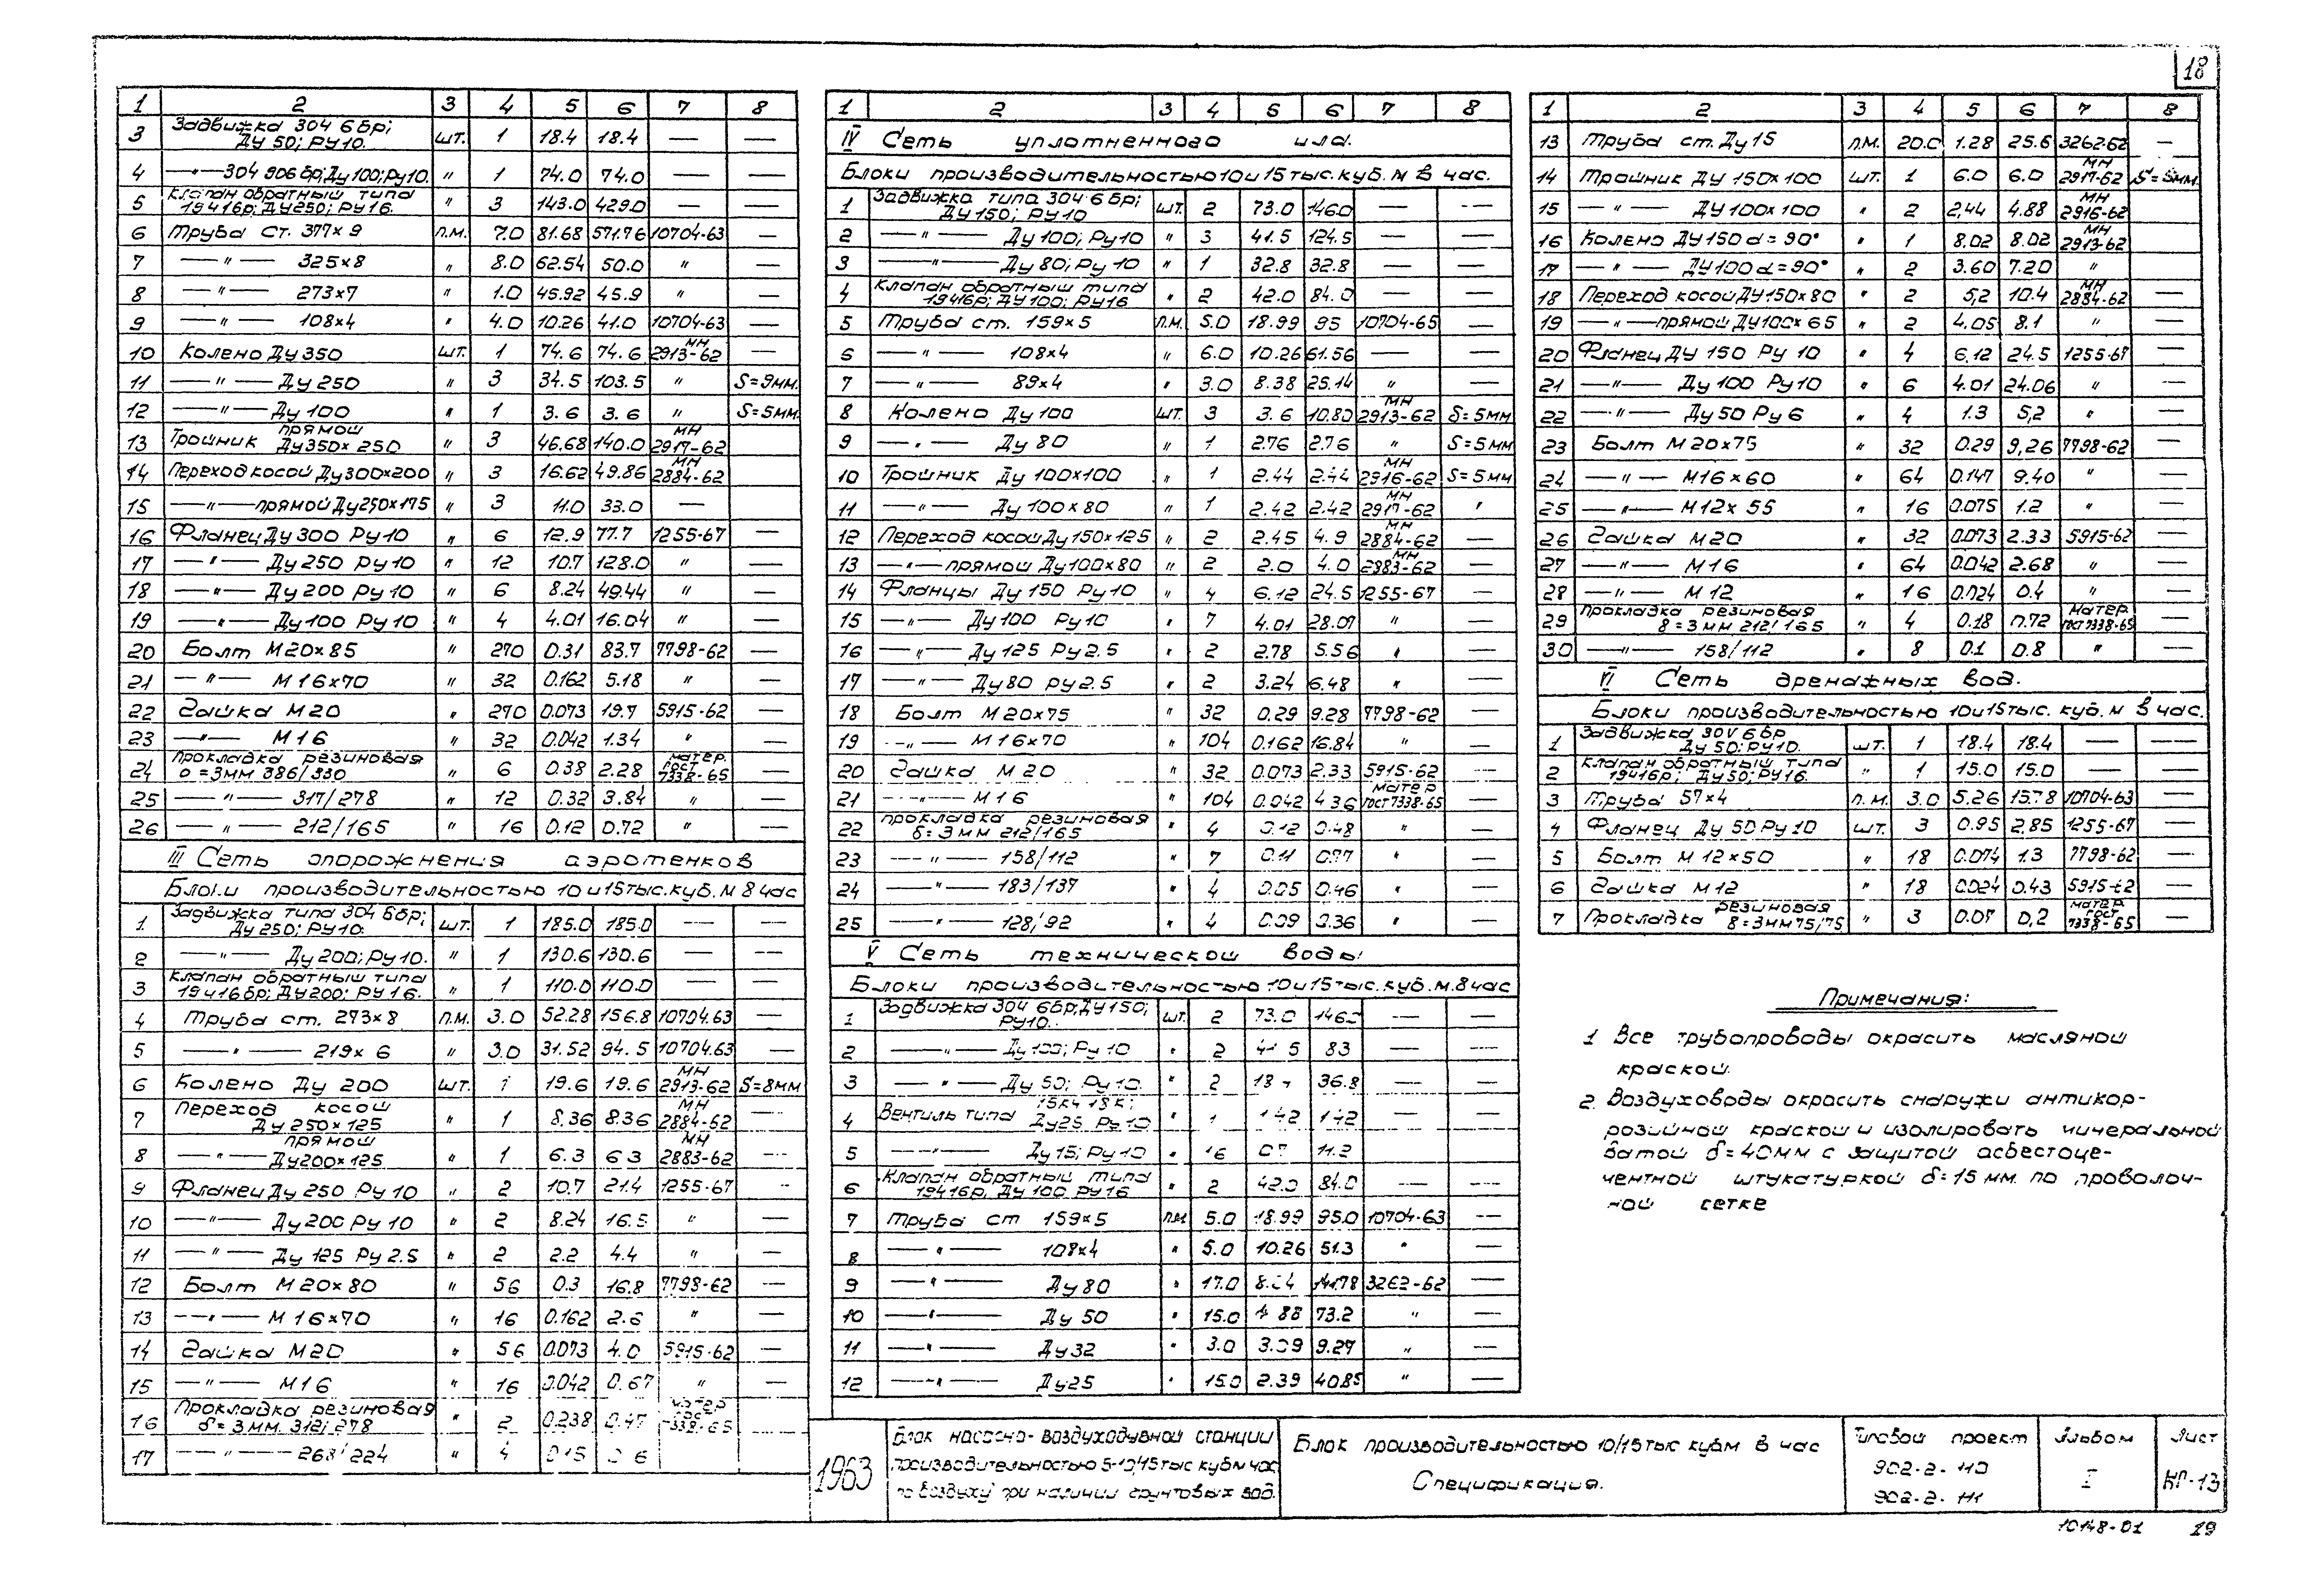 18
1 2 3 4 5 6 7 8
3 Задвижка 304 6 бр; Ду 50; Ру10. шт. 1 18.4 18.4 — —
4 —"— 304 906 бр; Ду 100; Ру10. " 1 74.0 74.0 — —
5 Клапан обратный типа 19ч16р; Ду250; Ру16. " 3 143.0 429.0 — —
6 Труба ст. 377×9 п.м. 7.0 81.68 571.76 10704-63 —
7 —"— 325×8 " 8.0 62.54 50.0 " —
8 —"— 273×7 " 1.0 45.92 45.9 " —
9 —"— 108×4 " 4.0 10.26 41.0 10704-63 —
10 Колено Ду350 шт. 1 74.6 74.6 МН 2913-62 —
11 —"— Ду 250 " 3 34.5 103.5 " S=9мм.
12 —"— Ду 100 " 1 3.6 3.6 " S=5мм.
13 Тройник прямой Ду350×250 " 3 46.68 140.0 МН 2917-62
14 Переход косой Ду300×200 " 3 16.62 49.86 МН 2884-62
15 —"— прямой Ду250×175 " 3 11.0 33.0 —
16 Фланец Ду 300 Ру10 " 6 12.9 77.7 1255-67 —
17 —"— Ду 250 Ру10 " 12 10.7 128.0 " —
18 —"— Ду 200 Ру10 " 6 8.24 49.44 " —
19 —"— Ду100 Ру10 " 4 4.01 16.04 " —
20 Болт М20×85 " 270 0.31 83.7 7798-62 —
21 —"— М16×70 " 32 0.162 5.18 " —
22 Гайка М20 " 270 0.073 19.7 5915-62 —
23 —"— М16 " 32 0.042 1.34 " —
24 Прокладка резиновая δ=3мм 386/330 " 6 0.38 2.28 матер. гост 7338-65 —
25 —"— 317/278 " 12 0.32 3.84 " —
26 —"— 212/165 " 16 0.12 0.72 " —
III Сеть опорожнения аэротенков
Блоки производительностью 10 и 15 тыс. куб. м в час
1 Задвижка типа 304 6 бр; Ду 250; Ру10. шт. 1 185.0 185.0 — —
2 —"— Ду 200; Ру10. " 1 130.6 130.6 — —
3 Клапан обратный типа 19ч16бр; Ду200; Ру16. " 1 110.0 110.0 — —
4 Труба ст. 273×8 п.м. 3.0 52.28 156.8 10704.63 —
5 —"— 219×6 " 3.0 31.52 94.5 10704.63 —
6 Колено Ду 200 шт. 1 19.6 19.6 МН 2913-62 S=8мм
7 Переход косой Ду 250×125 " 1 8.36 8.36 МН 2884-62 —
8 —"— прямой Ду200×125 " 1 6.3 6.3 МН 2883-62 —
9 Фланец Ду 250 Ру10 " 2 10.7 21.4 1255-67 —
10 —"— Ду200 Ру 10 " 2 8.24 16.5 " —
11 —"— Ду 125 Ру 2.5 " 2 2.2 4.4 " —
12 Болт М20×80 " 56 0.3 16.8 7798-62 —
13 —"— М16×70 " 16 0.162 2.6 " —
14 Гайка М20 " 56 0.073 4.0 5915-62 —
15 —"— М16 " 16 0.042 0.67 " —
16 Прокладка резиновая δ=3мм. 312/278 " 2 0.238 0.47 —
17 —"— 268/224 " 4
1 2 3 4 5 6 7 8
IV Сеть уплотненного ила.
Блоки производительностью 10 и 15 тыс. куб. м в час.
1 Задвижка типа 304 6 бр; Ду 150; Ру10 шт. 2 73.0 146.0 — —
2 —"— Ду 100; Ру10 " 3 41.5 124.5 — —
3 —"— Ду 80; Ру 10 " 1 32.8 32.8 — —
4 Клапан обратный типа 19ч16р; Ду100; Ру16 " 2 42.0 84.0 — —
5 Труба ст. 159×5 п.м. 5.0 18.99 95 10704-65 —
6 —"— 108×4 " 6.0 10.26 61.56 — —
7 —"— 89×4 " 3.0 8.38 25.14 " —
8 Колено Ду 100 шт. 3 3.6 10.80 МН 2913-62 S=5мм
9 —"— Ду 80 " 1 2.76 2.76 " S=5мм
10 Тройник Ду 100×100 " 1 2.44 2.44 МН 2916-62 S=5мм
11 —"— Ду 100×80 " 1 2.42 2.42 МН 2917-62 "
12 Переход косой Ду 150×125 " 2 2.45 4.9 МН 2884-62 —
13 —"— прямой Ду100×80 " 2 2.0 4.0 МН 2883-62 —
14 Фланцы Ду 150 Ру10 " 4 6.12 24.5 1255-67 —
15 —"— Ду100 Ру10 " 7 4.01 28.07 " —
16 —"— Ду 125 Ру 2.5 " 2 2.78 5.56 " —
17 —"— Ду80 Ру 2.5 " 2 3.24 6.48 " —
18 Болт М20×75 " 32 0.29 9.28 7798-62 —
19 —"— М16×70 " 104 0.162 16.84 " —
20 Гайка М20 " 32 0.073 2.33 5915-62 —
21 —"— М16 " 104 0.042 4.36 матер гост 7338-65 —
22 прокладка резиновая δ=3мм 212/165 " 4 0.12 0.48 " —
23 —"— 158/112 " 7 0.11 0.77 " —
24 —"— 183/137 " 4 " —
25 —"— 128/92 " 4 0.09 0.36 " —
V Сеть технической воды
Блоки производительностью 10 и 15 тыс. куб. м. в час
1 Задвижка 304 6бр; Ду150; Ру10. шт. 2 73.0 — —
2 —"— Ду 100; Ру 10 " 2 41.5 83 — —
3 —"— Ду 50; Ру 10. " 2 36.8 — —
4 Вентиль типа Ду25 Ру10 " — —
5 —"— Ду 15; Ру10 " 16 11.2
6 Клапан обратный типа 19ч16р, Ду 100 Ру16 " 2 42.0 84.0 — —
7 Труба ст 159×5 п.м. 5.0 18.99 95.0 10704-63 —
8 —"— 108×4 " 5.0 10.26 51.3 " —
9 —"— Ду 80 " 17.0 3262-62 —
10 —"— Ду 50 " 15.0 4.88 73.2 " —
11 —"— Ду32 " 3.0 3.09 9.27 " —
12 —"— Ду25 " 15.0 2.39 40.85 " —
1 2 3 4 5 6 7 8
13 Труба ст. Ду 15 п.м. 20.0 1.28 25.6 3262-62 —
14 Тройник Ду 150×100 шт. 1 6.0 6.0 МН 2917-62 S=5мм.
15 —"— Ду 100×100 " 2 2,44 4.88 МН 2916-62
16 Колено Ду 150 α=90° " 1 8.02 8.02 МН 2913-62
17 —"— Ду 100 α=90° " 2 3.60 7.20 "
18 Переход косой Ду150×80 " 2 5,2 10.4 МН 2884-62
19 —"— прямой Ду100×65 " 2 4.05 8.1 " —
20 Фланец Ду 150 Ру 10 " 4 6.12 24.5 1255-67 —
21 —"— Ду 100 Ру10 " 6 4.01 24.06 " —
22 —"— Ду 50 Ру 6 " 4 1.3 5,2 " —
23 Болт М20×75 " 32 0.29 9,26 7798-62 —
24 —"— М16×60 " 64 0.147 9.40 " —
25 —"— М12×55 " 16 0.075 1.2 " —
26 Гайка М20 " 32 0.073 2.33 5915-62 —
27 —"— М16 " 64 0.042 2.68 " —
28 —"— М12 " 16 0.024 0.4 " —
29 Прокладка резиновая δ=3мм 212/165 " 4 0.18 0.72 матер. гост 7338-65 —
30 —"— 158/112 " 8 0.1 0.8 " —
VI Сеть дренажных вод.
Блоки производительностью 10 и 15 тыс. куб. м в час.
1 Задвижка 30ч 6 бр Ду 50; Ру10. шт. 1 18.4 18.4 — —
2 Клапан обратный типа 19ч16р; Ду50; Ру16. " 1 15.0 15.0 — —
3 Труба 57×4 п.м. 3.0 5.26 15.78 10704-63 —
4 Фланец Ду 50 Ру10 шт. 3 0.95 2,85 1255-67 —
5 Болт М12×50 " 18 0.074 1.3 7798-62 —
6 Гайка М12 " 18 0.024 0.43 5915-62 —
7 Прокладка резиновая δ=3мм 75/75 " 3 0.07 0,2 матер. гост 7338-65 —
Примечания:
1 Все трубопроводы окрасить масляной
краской.
2. Воздуховоды окрасить снаружи антикор-
розийной краской и изолировать минеральной
ватой δ=40мм с защитой асбестоце-
ментной штукатуркой δ=15 мм. по проволоч-
ной сетке
1963
Блок насосно-воздуходувной станции
производительностью 5-10/15 тыс кубм час
по воздуху при наличии грунтовых вод.
Блок производительностью 10/15 тыс кубм в час
Спецификация.
Типовой проект
902-2-110
902-2-111
Альбом
I
Лист
НР-13
10148-01 19